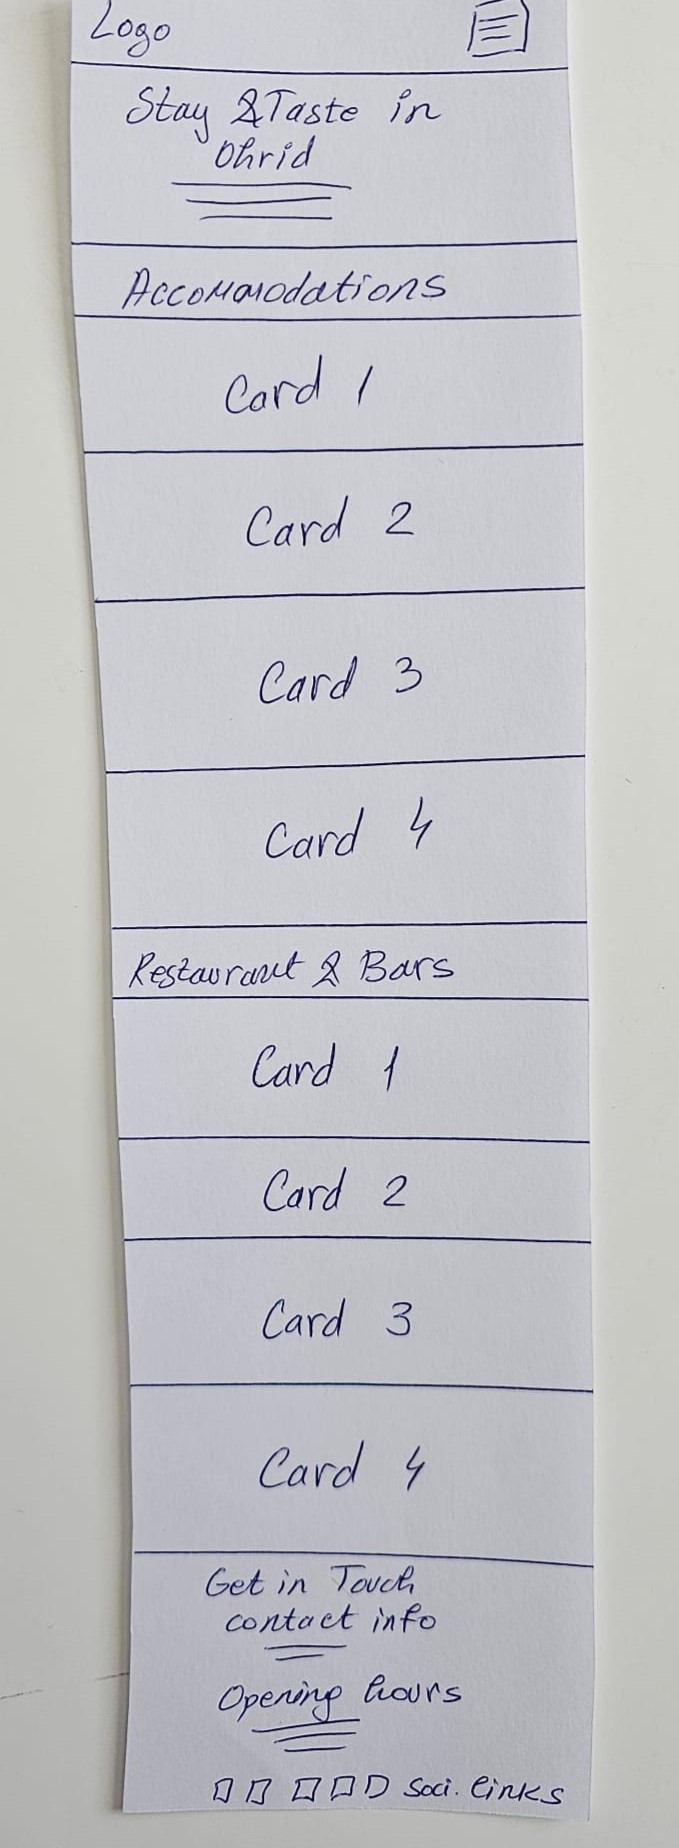 Logo
Stay & Taste in
Ohrid
Accommodations
Card 1
Card 2
Card 3
Card 4
Restaurant & Bars
Card 1
Card 2
Card 3
Card 4
Get in Touch
contact info
Opening hours
soci. links